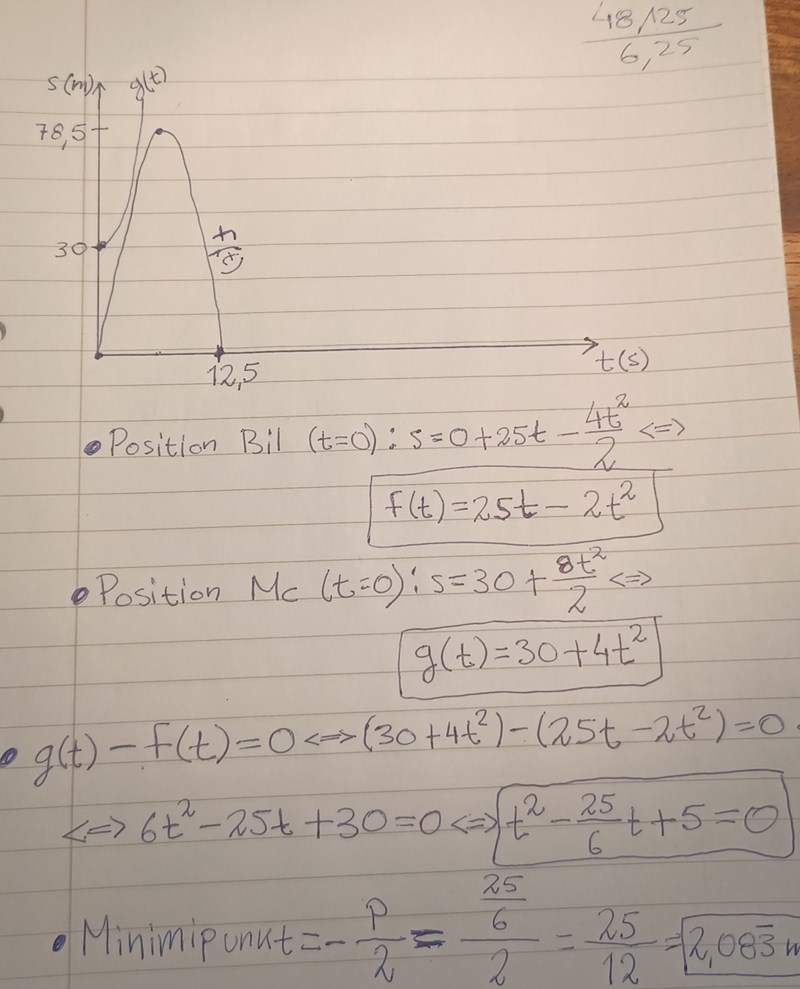 48,125
6,25
s(m) g(t)
78,5
30
f(t)
12,5
t(s)
• Position Bil (t=0): s=0+25t-4t²/2 <=>
f(t)=25t-2t²
• Position Mc (t=0): s=30+8t²/2 <=>
g(t)=30+4t²
• g(t)-f(t)=0<=>(30+4t²)-(25t-2t²)=0
<=> 6t²-25t+30=0<=> t²-25/6t+5=0
• Minimipunkt=-p/2=25/6/2=25/12=2,083̅ m